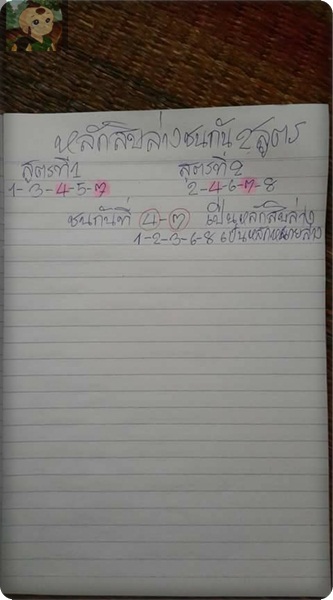 หลักสิบล่างชนกัน 2 สูตร
สูตรที่1 สูตรที่2
1-3-4-5-7 2-4-6-7-8
ชนกันที่ 4-7 เป็นหลักสิบล่าง
1-2-3-6-8 เป็นหลักหน่วยล่าง